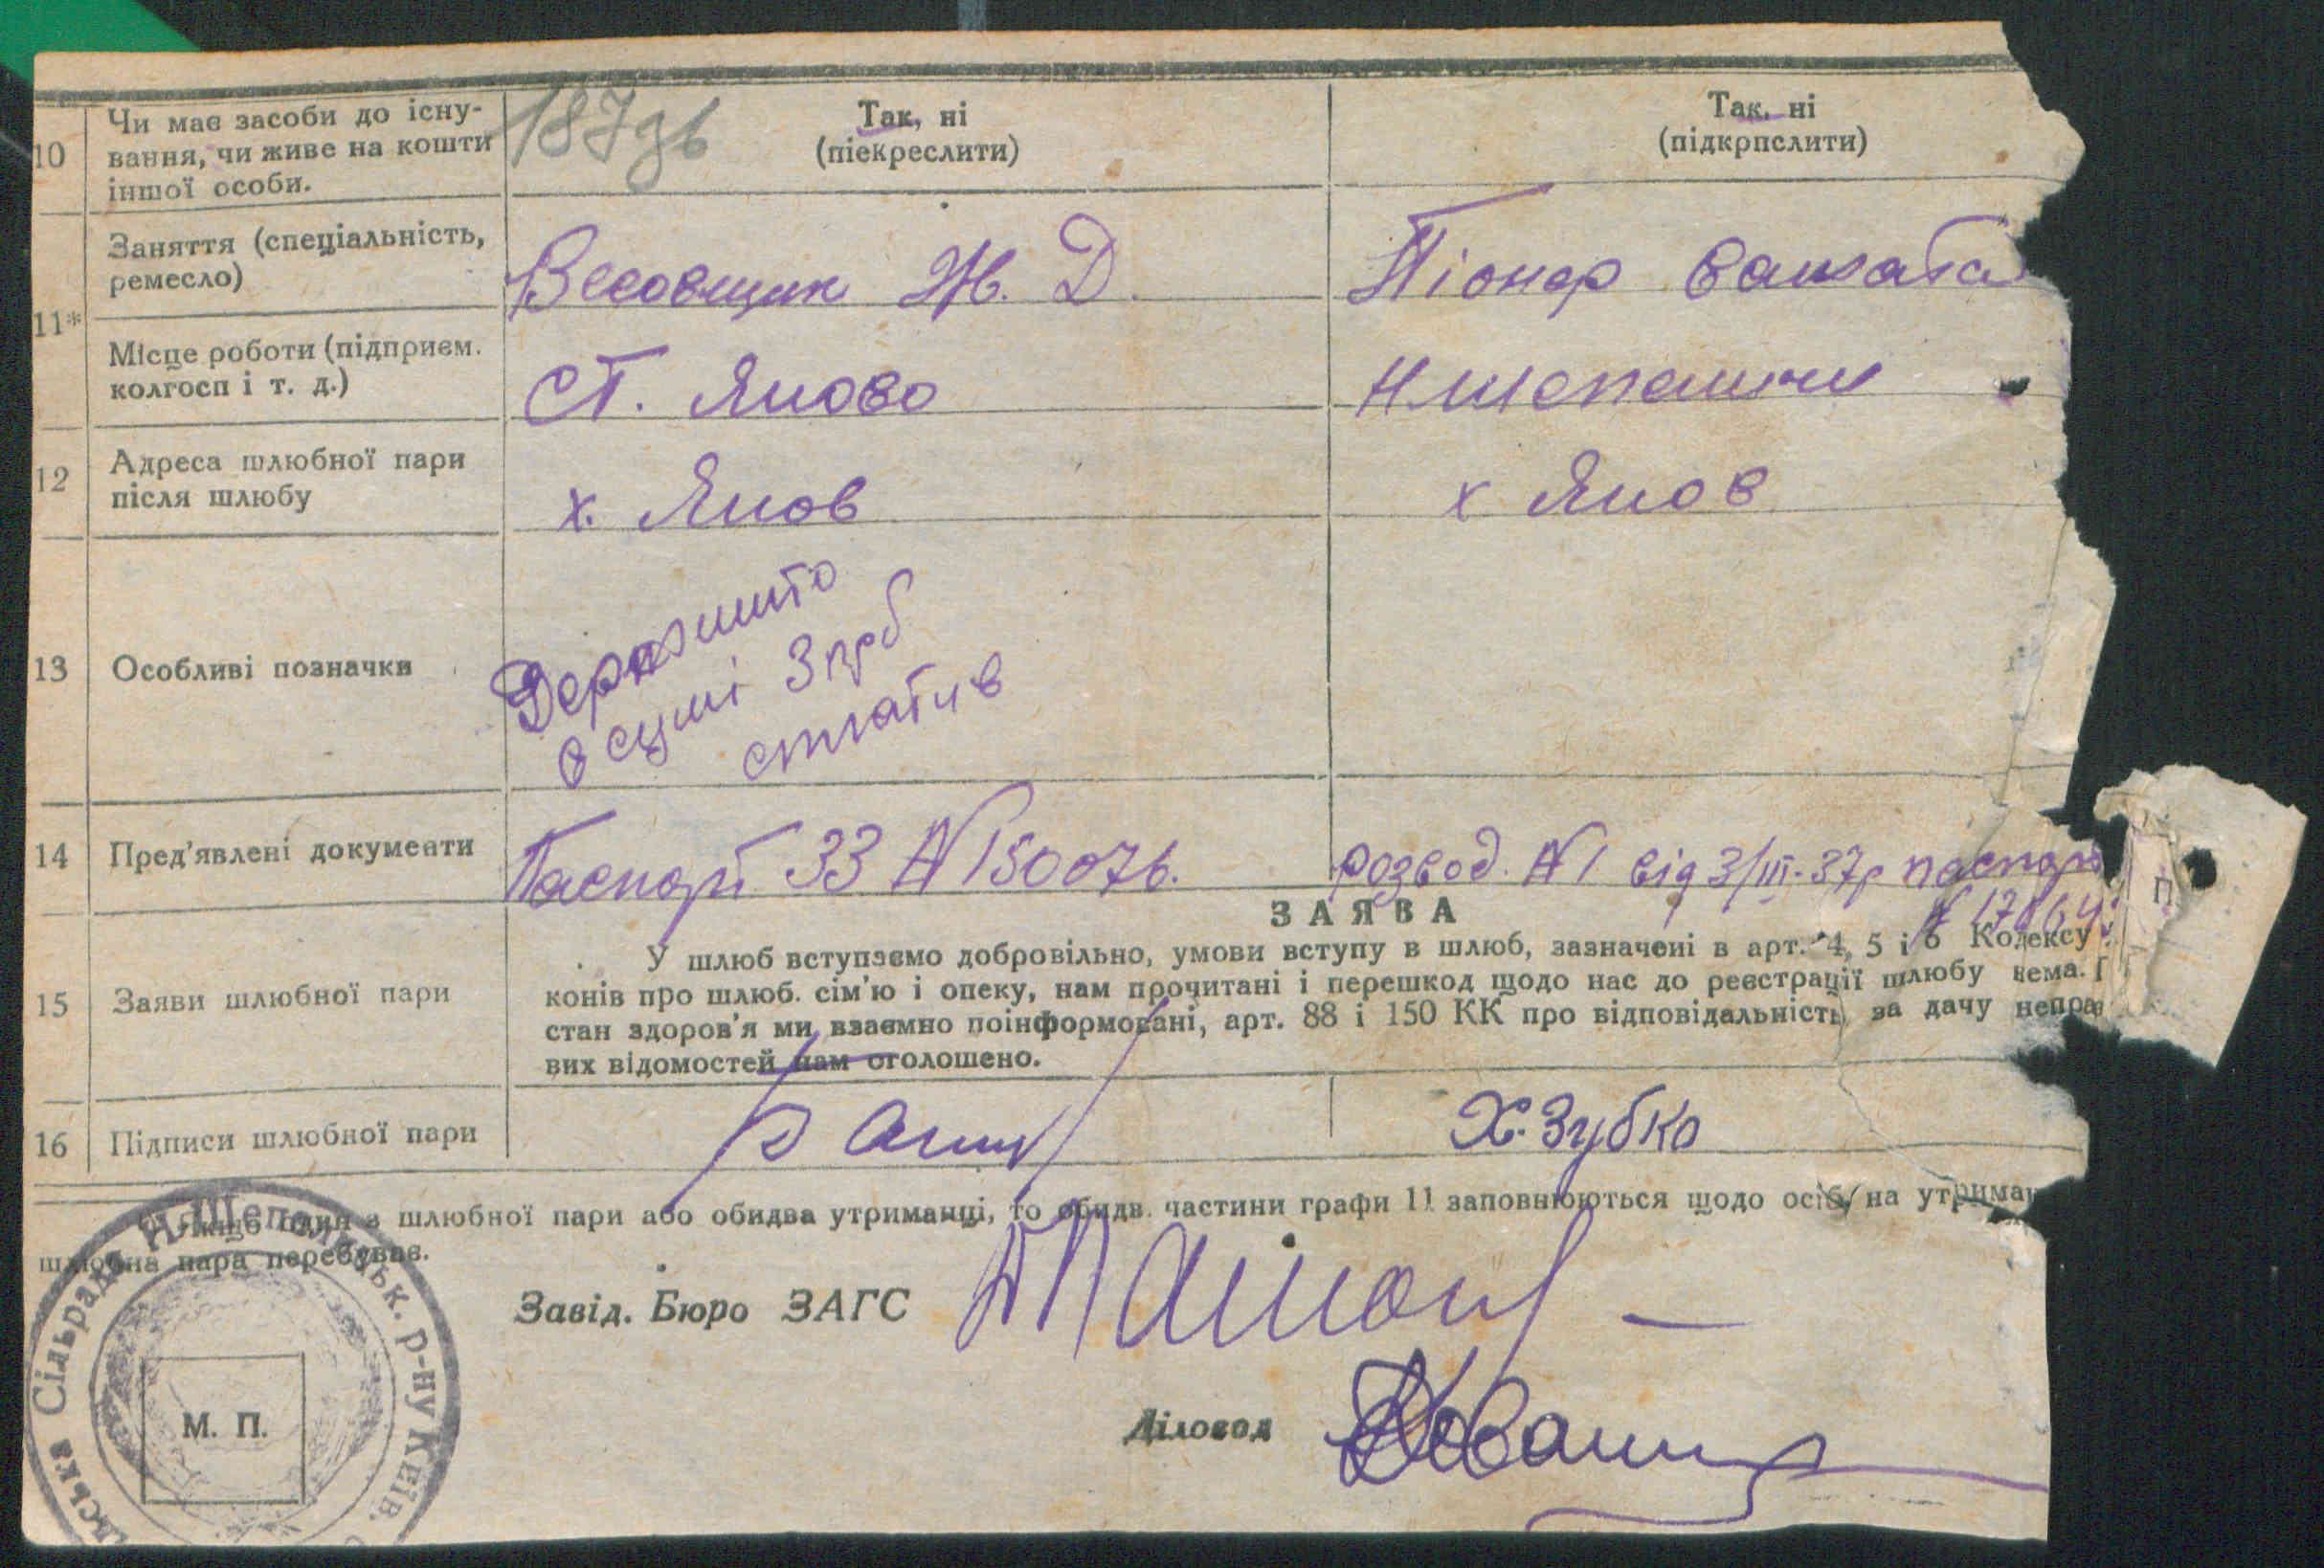 10 Чи має засоби до існу-
вання, чи живе на кошти
іншої особи.
187 зв
Так, ні
(піекреслити)
Так, ні
(підкрпслити)
11*
Заняття (спеціальність,
ремесло)
Весовщик Ж. Д.
Піонер Вожата
Місце роботи (підприєм.
колгосп і т. д.)
ст. Яново
12 Адреса шлюбної пари
після шлюбу
х. Янов
х Янов
13 Особливі позначки
Держмито
в сумі 3 крб
сплатив
14 Пред'явлені документи
Паспорт 33 № 150076.
розвод. № 1 від 3/III-37р паспорт
ЗАЯВА
15 Заяви шлюбної пари
У шлюб вступаємо добровільно, умови вступу в шлюб, зазначені в арт. 4, 5 і 6 Кодексу
конів про шлюб. сім'ю і опеку, нам прочитані і перешкод щодо нас до реєстрації шлюбу нема.
стан здоров'я ми взаємно поінформовані, арт. 88 і 150 КК про відповідальність за дачу непра
вих відомостей нам оголошено.
16 Підписи шлюбної пари
Х. Зубко
Якщо один з шлюбної пари або обидва утриманці, то обидв. частини графи 11 заповнюються щодо осіб, на утриман
шлюбна пара перебуває.
Завід. Бюро ЗАГС
Діловод
М. П.
ська Сільрада Н-Шепелицьк. р-ну Київ.
П